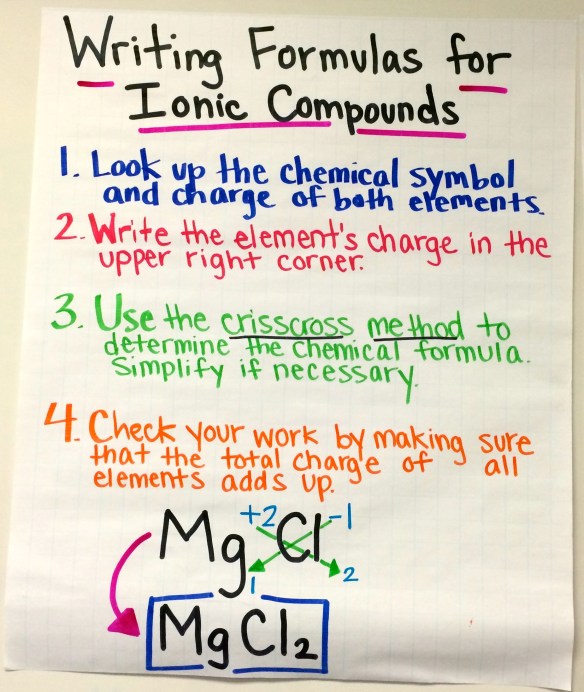 Writing Formulas for
Ionic Compounds
1. Look up the chemical symbol
and charge of both elements.
2. Write the element's charge in the
upper right corner.
3. Use the crisscross method to
determine the chemical formula.
Simplify if necessary.
4. Check your work by making sure
that the total charge of all
elements adds up.
Mg+2 Cl-1
1 2
MgCl2